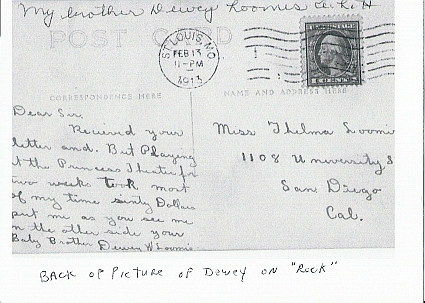 My brother Dewey Loomis
POST CARD
ST. LOUIS, MO.
FEB 13
11-PM
1913
CORRESPONDENCE HERE
NAME AND ADDRESS HERE
Dear Sis,
Recieved your
letter and. But Playing
at the Princess Theatre for
two weeks took most
of my time sixty Dollars
put me as you see me
on the other side your
Baby Brother Dewey W Loomis
Miss Thelma Loomis
1108 University
San Diego
Cal.
BACK OF PICTURE OF DEWEY ON "Rock"